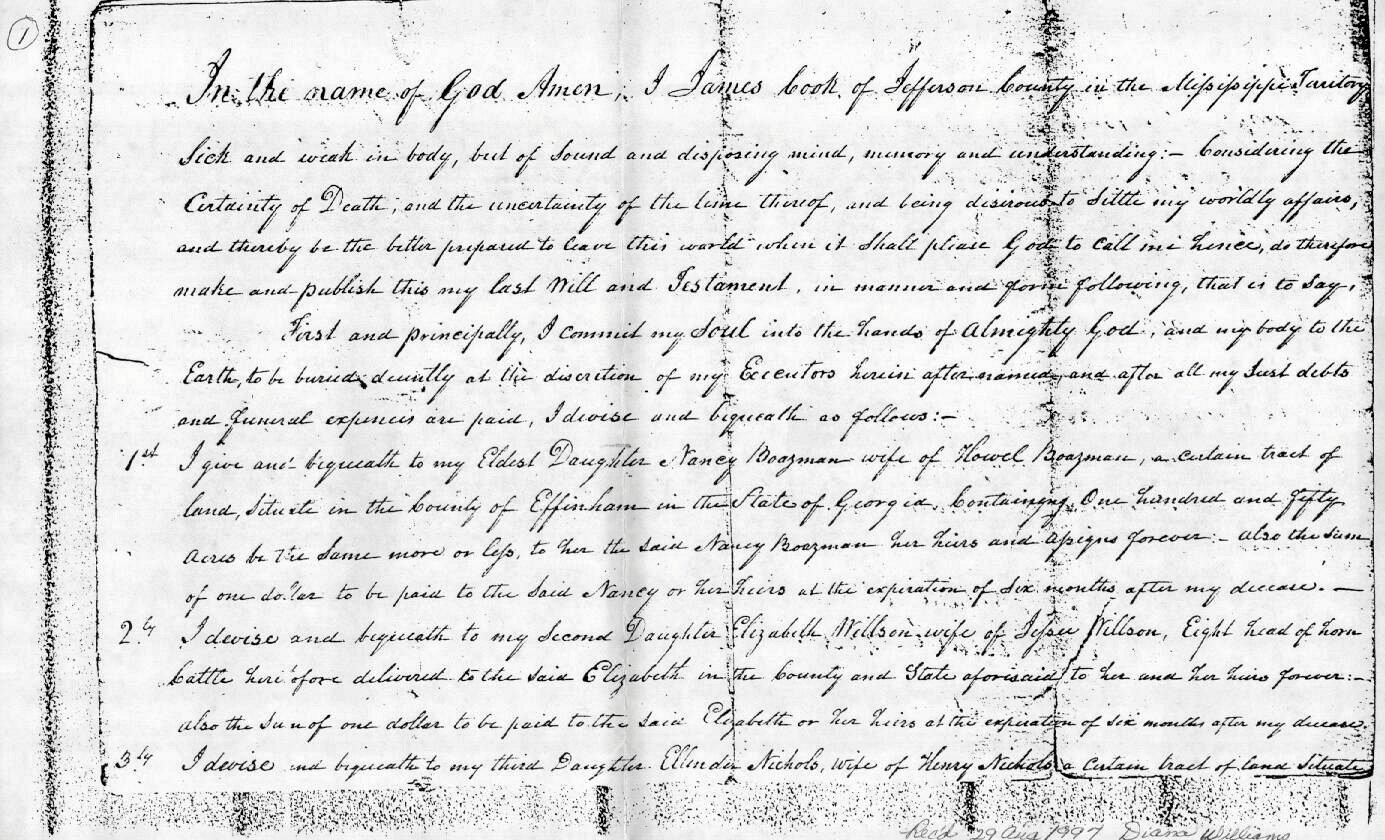 1
In the name of God Amen, I James Cook of Jefferson County in the Missisippi Territory
Sick and weak in body, but of Sound and disposing mind, memory and understanding:- Considering the
Certainty of Death, and the uncertainty of the time thereof, and being desirous to Settle my worldly affairs,
and thereby be the better prepared to leave this world when it Shall please God to call me hence, do therefore
make and publish this my last Will and Testament, in manner and form following, that is to Say,
First and principally, I commit my Soul into the hands of Almighty God, and my body to the
Earth, to be buried decently at the discretion of my Executors herein after named, and after all my Just debts
and funeral expences are paid, I devise and bequeath as follows:-
1st I give and bequeath to my Eldest Daughter Nancy Boazman wife of Howel Boazman, a certain tract of
land, Situate in the County of Effinham in the State of Georgia, Containing One hundred and fifty
Acres be the Same more or less, to her the said Nancy Boazman her heirs and assigns forever:- also the Sum
of one dollar to be paid to the Said Nancy or her heirs at the expiration of Six months after my decease.-
2.ly I devise and bequeath to my Second Daughter Elizabeth Willson wife of Jessee Willson, Eight head of horn
Cattle heretofore delivered to the said Elizabeth in the County and State aforesaid to her and her heirs forever:-
also the Sum of one dollar to be paid to the said Elizabeth or her heirs at the expiration of Six months after my decease.
3.ly I devise and bequeath to my third Daughter Ellender Nichols, wife of Henry Nichols a certain tract of land Situate
Recd 29 Aug 1997 Diana Williams